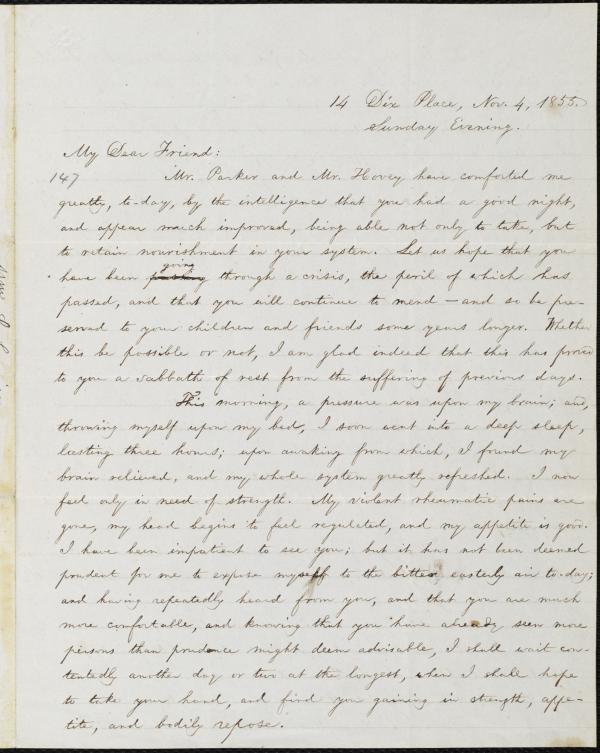 14 Dix Place, Nov. 4, 1855.
Sunday Evening.
My Dear Friend:
147
Mr. Parker and Mr. Hovey have comforted me
greatly, to-day, by the intelligence that you had a good night,
and appear much improved, being able not only to take, but
to retain nourishment in your system. Let us hope that you
going
have been through a crisis, the peril of which has
passed, and that you will continue to mend — and so be pre-
served to your children and friends some years longer. Whether
this be possible or not, I am glad indeed that this has proved
to you a sabbath of rest from the suffering of previous days.
This morning, a pressure was upon my brain; and,
throwing myself upon my bed, I soon went into a deep sleep,
lasting three hours; upon awaking from which, I found my
brain relieved, and my whole system greatly refreshed. I now
feel only in need of strength. My violent rheumatic pains are
gone, my head begins to feel regulated, and my appetite is good.
I have been impatient to see you; but it has not been deemed
prudent for me to expose myself to the bitter easterly air to-day;
and having repeatedly heard from you, and that you are much
more comfortable, and knowing that you have already seen more
persons than prudence might deem advisable, I shall wait con-
tentedly another day or two at the longest, when I shall hope
to take your hand, and find you gaining in strength, appe-
tite, and bodily repose.